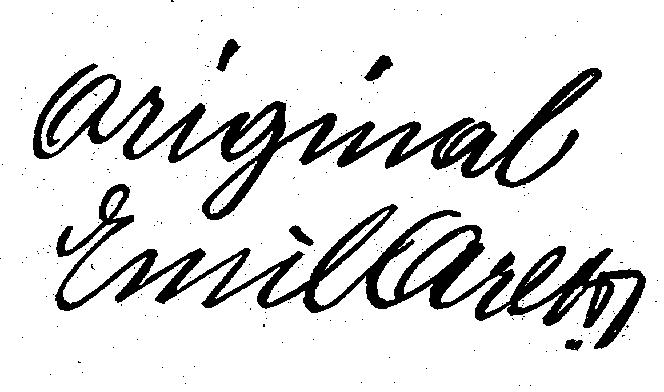 Original
Emil Arlt